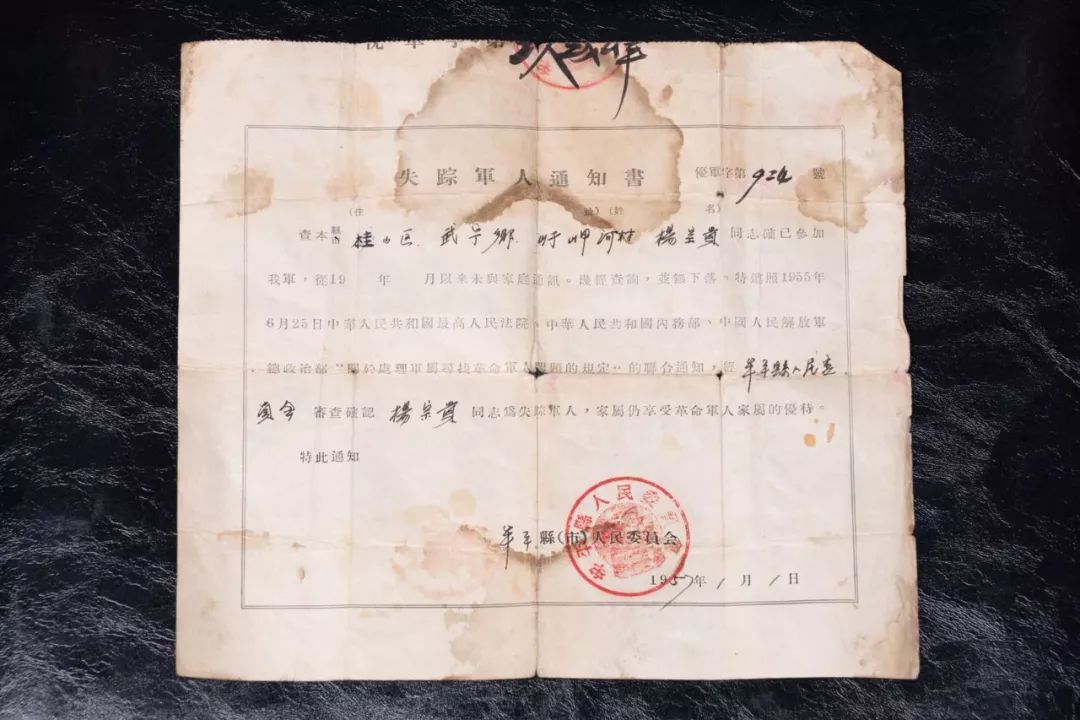 失踪軍人通知書
優軍字第924號
(住 址)(姓 名)
查本縣市 桂山区 武宁鄉 河村 楊宗貴 同志確已參加
我軍,從19 年 月以來未與家庭通訊。幾經查詢,並無下落。特遵照1955年
6月25日中華人民共和國最高人民法院、中華人民共和國內務部、中國人民解放軍
總政治部“關於處理軍屬尋找革命軍人問題的規定”的聯合通知,經 牟平縣人民委
員会 審查確認 楊宗貴 同志爲失踪軍人,家屬仍享受革命軍人家屬的優待。
特此通知
牟平縣(市)人民委員会
1957年1月1日